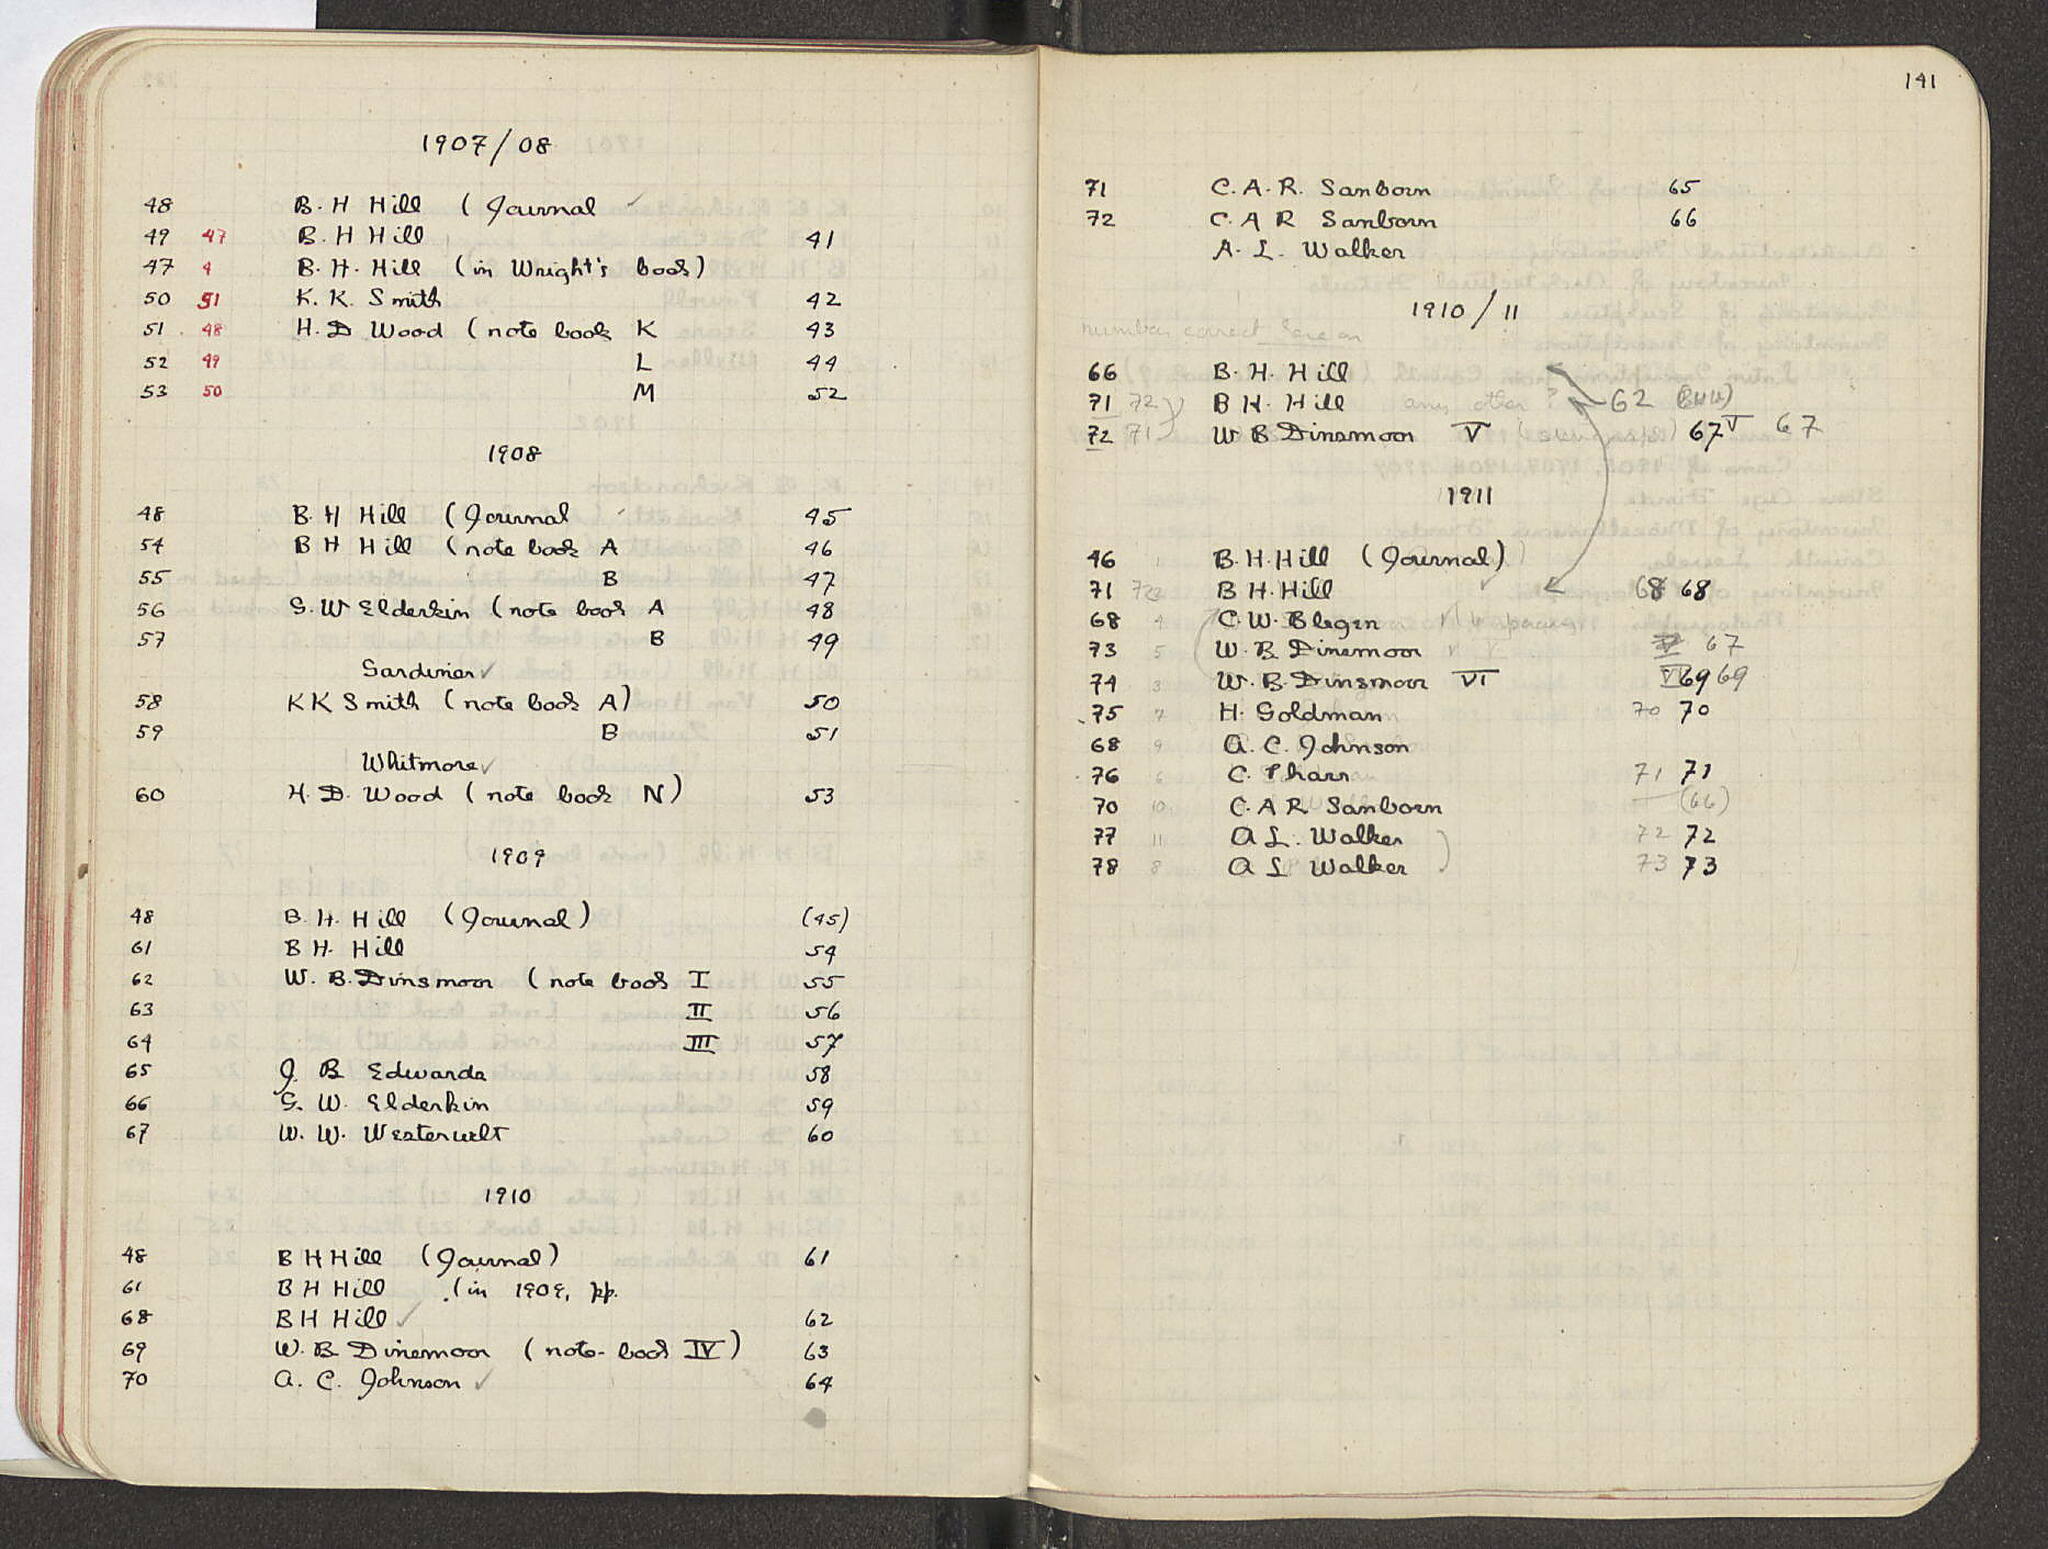 1907/08
48 B. H Hill (Journal ✓
49 47 B. H Hill 41
47 4 B. H. Hill (in Wright's book)
50 51 K. K. Smith 42
51 48 H. D Wood (note book K 43
52 49 L 44
53 50 M 52
1908
48 B. H Hill (Journal 45
54 B H Hill (note book A 46
55 B 47
56 G. W Elderkin (note book A 48
57 B 49
Gardiner ✓
58 K K Smith (note book A) 50
59 B 51
Whitmore ✓
60 H. D. Wood (note book N) 53
1909
48 B. H. Hill (Journal) (45)
61 B H. Hill 54
62 W. B. Dinsmoor (note book I 55
63 II 56
64 III 57
65 J. B Edwards 58
66 G. W. Elderkin 59
67 W. W. Westervelt 60
1910
48 B H Hill (Journal) 61
61 B H Hill (in 1909, pp.
68 B H Hill ✓ 62
69 W. B Dinsmoor (note-book IV) 63
70 A. C. Johnson ✓ 64
141
71 C. A. R. Sanborn 65
72 C. A R Sanborn 66
A. L. Walker
1910/11
number correct here on
66 B. H. Hill
71 72 B H. Hill any other ? 62 (BHH)
72 71 W B Dinsmoor V 67 V 67
1911
46 1 B. H. Hill (Journal)
71 72 B H. Hill ✓ 68 68
68 4 C. W. Blegen
73 5 W. B Dinsmoor V 67
74 3 W. B. Dinsmoor VI VI 69 69
75 7 H. Goldman 70 70
68 9 A. C. Johnson
76 6 C. Pharr 71 71
70 10 C. A R Sanborn (66)
77 11 A L. Walker 72 72
78 8 A L Walker 73 73